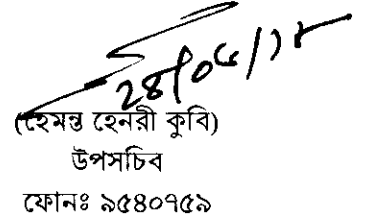 ২৪/০৫/১৮
(হেমন্ত হেনরী কুবি)
উপসচিব
ফোনঃ ৯৫৪০৭৫৯